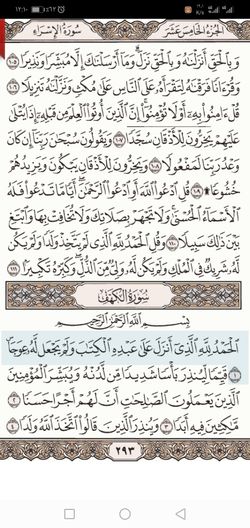 ١٢:١٠ ٪٦٢
الجزء الخامس عشر سورة الإسراء
وَبِالْحَقِّ أَنزَلْنَاهُ وَبِالْحَقِّ نَزَلَ وَمَا أَرْسَلْنَاكَ إِلَّا مُبَشِّرًا وَنَذِيرًا ١٠٥
وَقُرْءَانًا فَرَقْنَاهُ لِتَقْرَأَهُ عَلَى النَّاسِ عَلَى مُكْثٍ وَنَزَّلْنَاهُ تَنزِيلًا ١٠٦
قُلْ ءَامِنُوا بِهِ أَوْ لَا تُؤْمِنُوا إِنَّ الَّذِينَ أُوتُوا الْعِلْمَ مِن قَبْلِهِ إِذَا يُتْلَى
عَلَيْهِمْ يَخِرُّونَ لِلْأَذْقَانِ سُجَّدًا ١٠٧ وَيَقُولُونَ سُبْحَانَ رَبِّنَا إِن كَانَ
وَعْدُ رَبِّنَا لَمَفْعُولًا ١٠٨ وَيَخِرُّونَ لِلْأَذْقَانِ يَبْكُونَ وَيَزِيدُهُمْ
خُشُوعًا ۩ ١٠٩ قُلِ ادْعُوا اللَّهَ أَوِ ادْعُوا الرَّحْمَٰنَ أَيًّا مَّا تَدْعُوا فَلَهُ
الْأَسْمَاءُ الْحُسْنَى وَلَا تَجْهَرْ بِصَلَاتِكَ وَلَا تُخَافِتْ بِهَا وَابْتَغِ
بَيْنَ ذَٰلِكَ سَبِيلًا ١١٠ وَقُلِ الْحَمْدُ لِلَّهِ الَّذِي لَمْ يَتَّخِذْ وَلَدًا وَلَمْ يَكُن
لَّهُ شَرِيكٌ فِي الْمُلْكِ وَلَمْ يَكُن لَّهُ وَلِيٌّ مِّنَ الذُّلِّ وَكَبِّرْهُ تَكْبِيرًا ١١١
سورة الكهف
بِسْمِ اللَّهِ الرَّحْمَٰنِ الرَّحِيمِ
الْحَمْدُ لِلَّهِ الَّذِي أَنزَلَ عَلَى عَبْدِهِ الْكِتَابَ وَلَمْ يَجْعَل لَّهُ عِوَجًا
١ قَيِّمًا لِّيُنذِرَ بَأْسًا شَدِيدًا مِّن لَّدُنْهُ وَيُبَشِّرَ الْمُؤْمِنِينَ
الَّذِينَ يَعْمَلُونَ الصَّالِحَاتِ أَنَّ لَهُمْ أَجْرًا حَسَنًا ٢
مَّاكِثِينَ فِيهِ أَبَدًا ٣ وَيُنذِرَ الَّذِينَ قَالُوا اتَّخَذَ اللَّهُ وَلَدًا ٤
٢٩٣